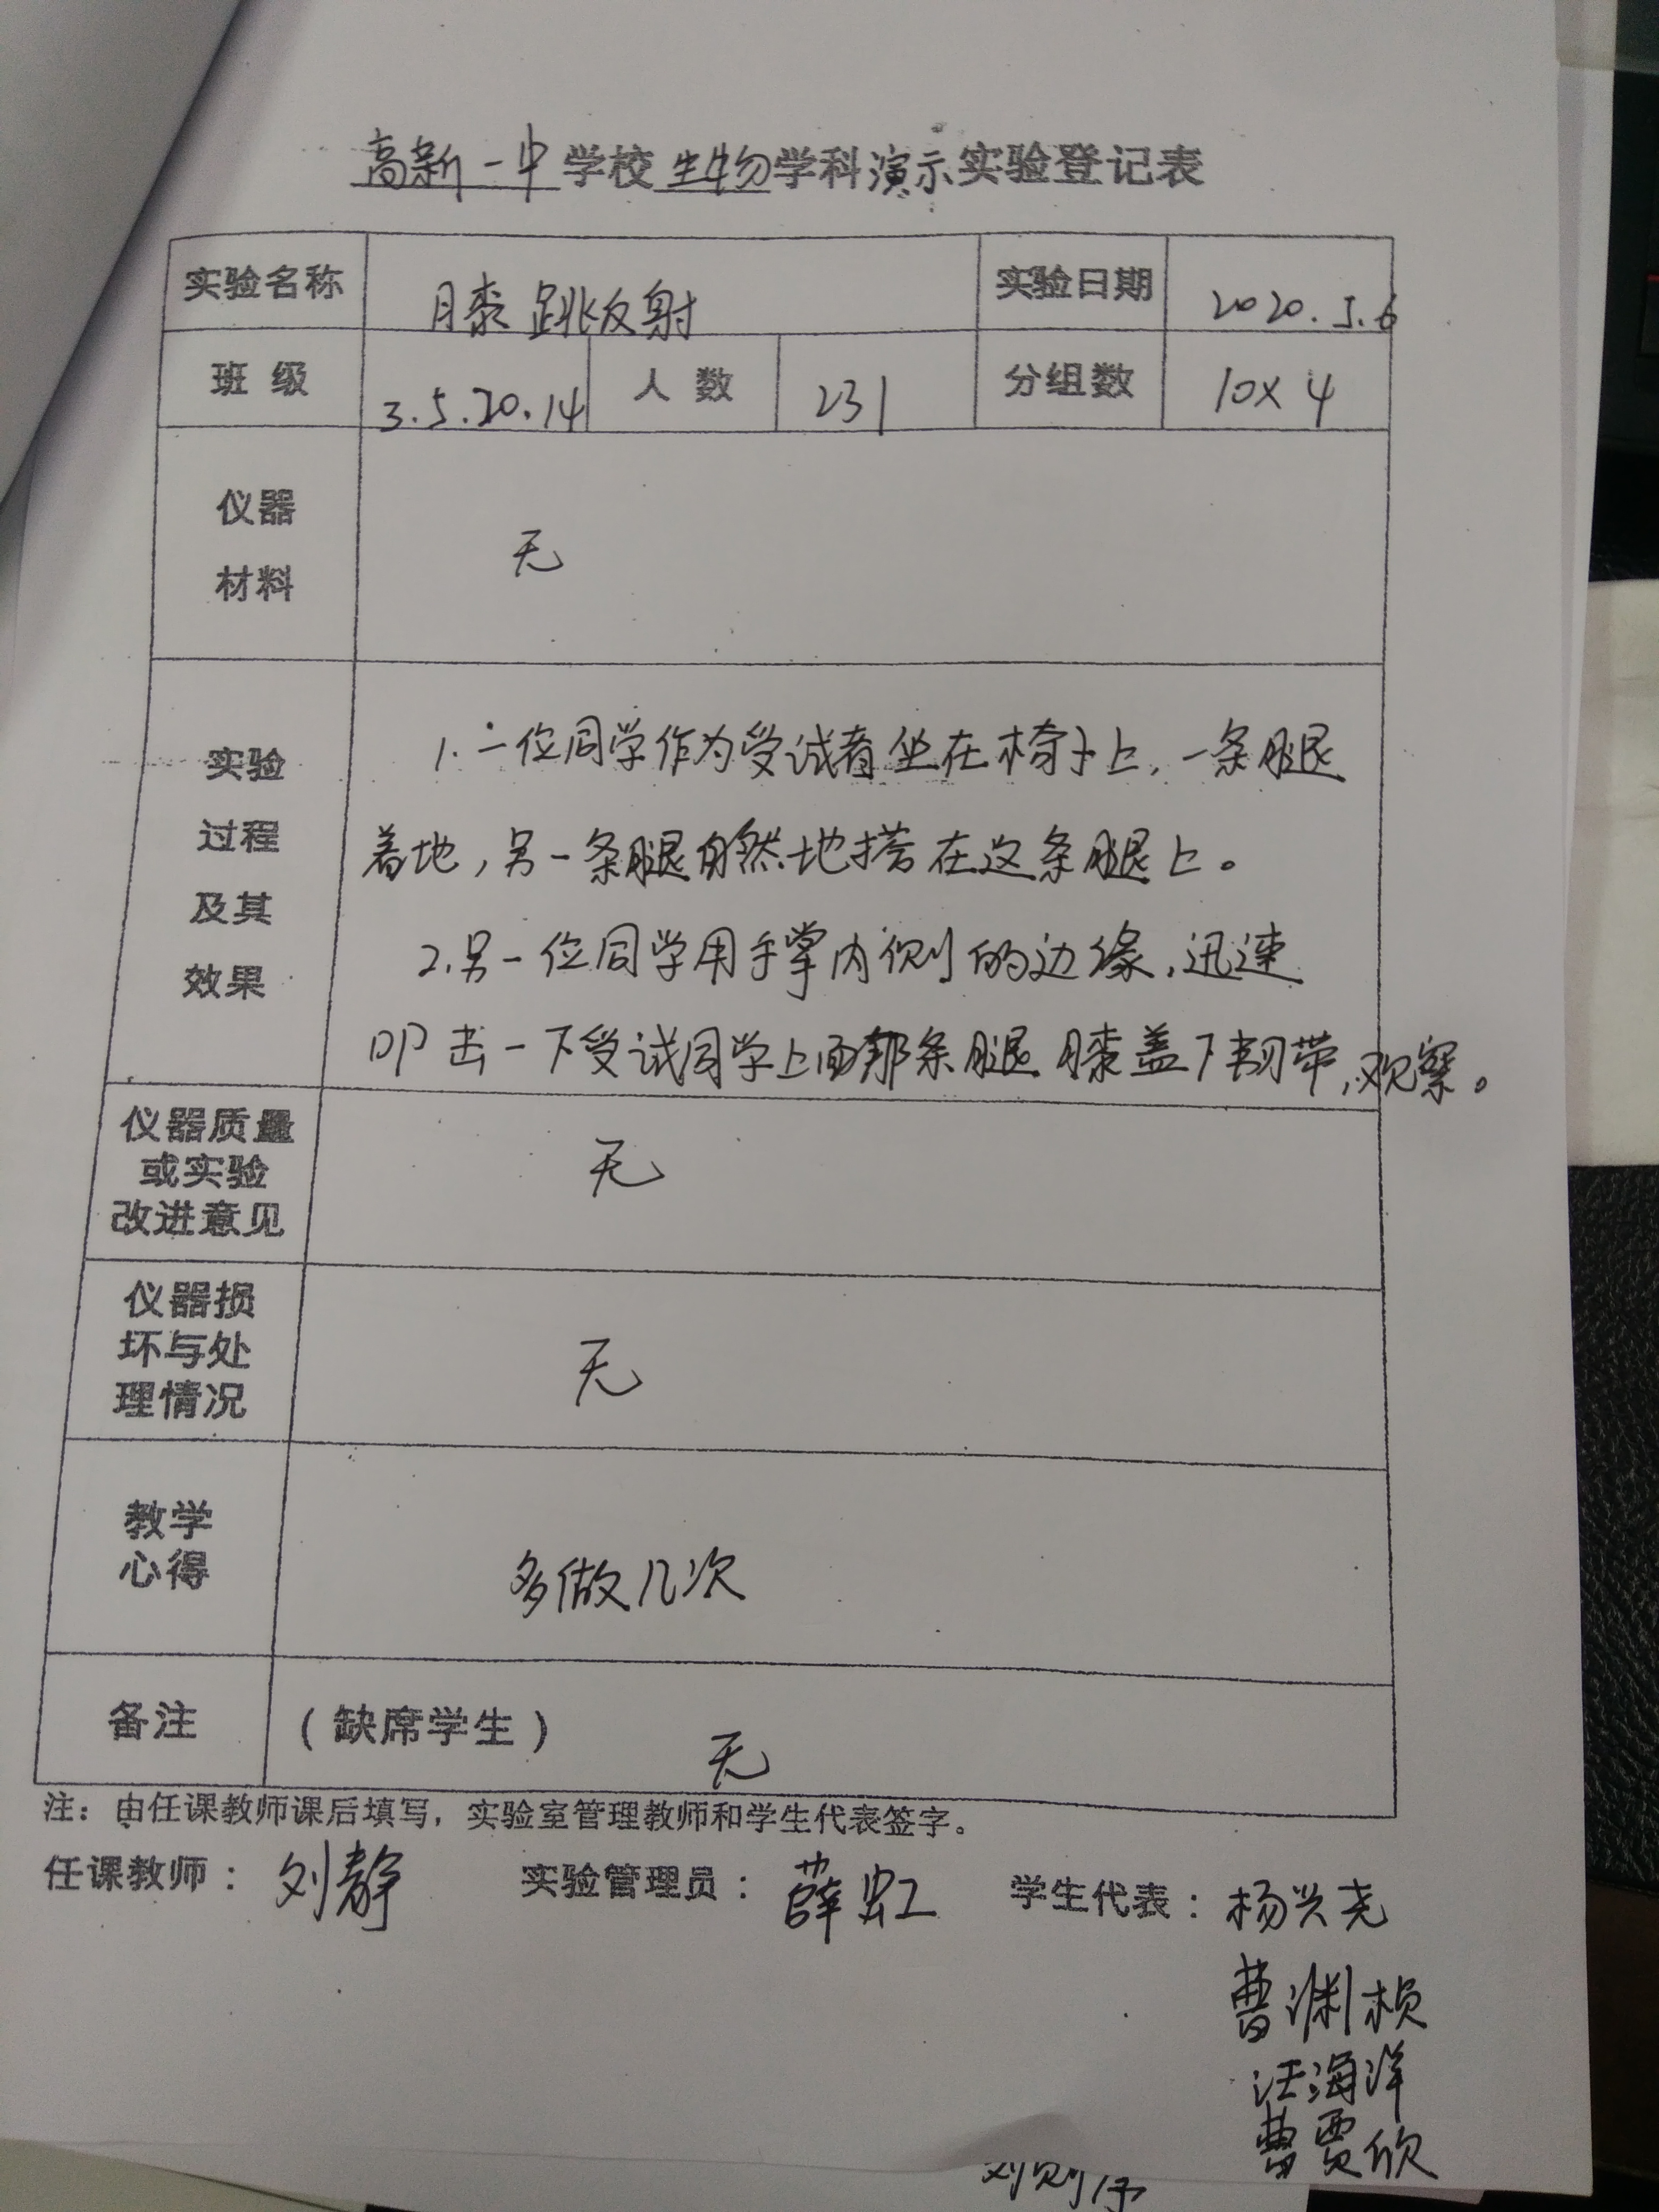 高新一中学校生物学科演示实验登记表
实验名称 膝跳反射 实验日期 2020.5.6
班级 3.5.20.14 人数 231 分组数 10×4
仪器
材料
无
实验
过程
及其
效果
1.一位同学作为受试者坐在椅子上,一条腿
着地,另一条腿自然地搭在这条腿上。
2.另一位同学用手掌内侧的边缘,迅速
叩击一下受试同学上面那条腿膝盖下韧带,观察。
仪器质量
或实验
改进意见
无
仪器损
坏与处
理情况
无
教学
心得
多做几次
备注 (缺席学生) 无
注:由任课教师课后填写,实验室管理教师和学生代表签字。
任课教师: 刘静 实验管理员: 薛虹 学生代表: 杨兴尧
曹渊桢
汪海洋
曹贾欣